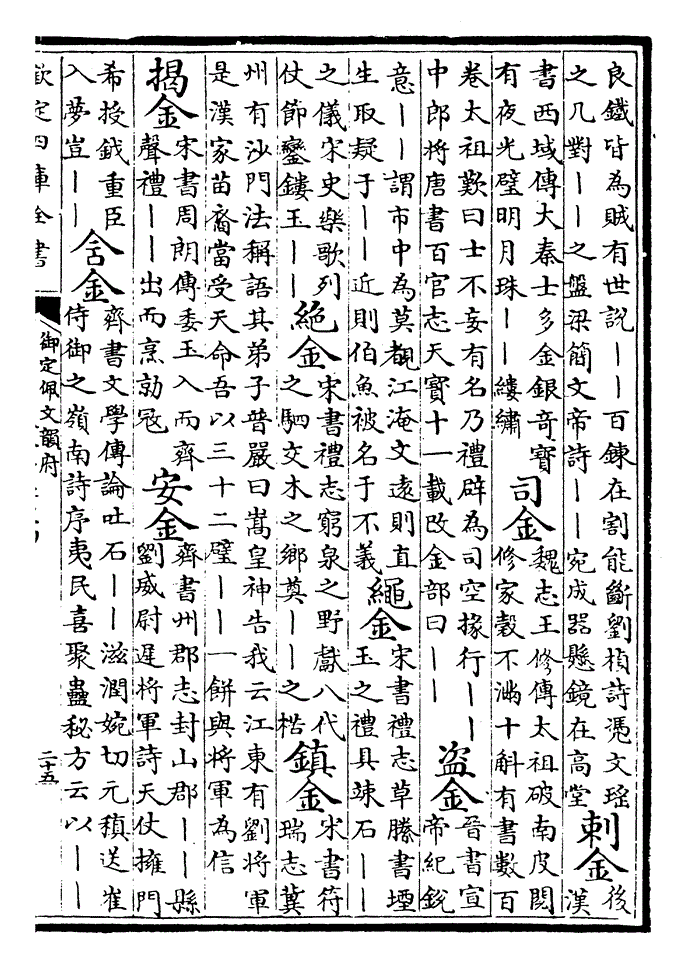 良鐵皆為賊有世說丨丨百鍊在割能斷劉楨詩憑文瑤
之几對丨丨之盤梁簡文帝詩丨丨宛成器懸鏡在高堂
刺金
後
漢
書西域傳大秦土多金銀奇寶
有夜光璧明月珠丨丨縷繡
司金
魏志王修傳太祖破南皮閱
修家穀不滿十斛有書數百
卷太祖歎曰士不妄有名乃禮辟為司空掾行丨丨
中郎將唐書百官志天寶十一載改金部曰丨丨
盗金
晉書宣
帝紀銳
意丨丨謂市中為莫覩江淹文遠則直
生取疑于丨丨近則伯魚被名于不義
繩金
宋書禮志草縢書堙
玉之禮具竦石丨丨
之儀宋史樂歌列
仗節鑾鏤玉丨丨
絶金
宋書禮志窮泉之野獻八代
之駟交木之鄉奠丨丨之楛
鎮金
宋書符
瑞志冀
州有沙門法稱語其弟子普嚴曰嵩皇神告我云江東有劉將軍
是漢家苗裔當受天命吾以三十二璧丨丨一餅與將軍為信
揭金
宋書周朗傳委玉入而齊
聲禮丨丨出而烹勍冦
安金
齊書州郡志封山郡丨丨縣
劉威尉遲將軍詩天仗擁門
希授鉞重臣
入夢豈丨丨
含金
齊書文學傳論吐石丨丨滋潤婉切元稹送崔
侍御之嶺南詩序夷民喜聚蠱秘方云以丨丨
欽定四庫全書
御定佩文韻府
二十五